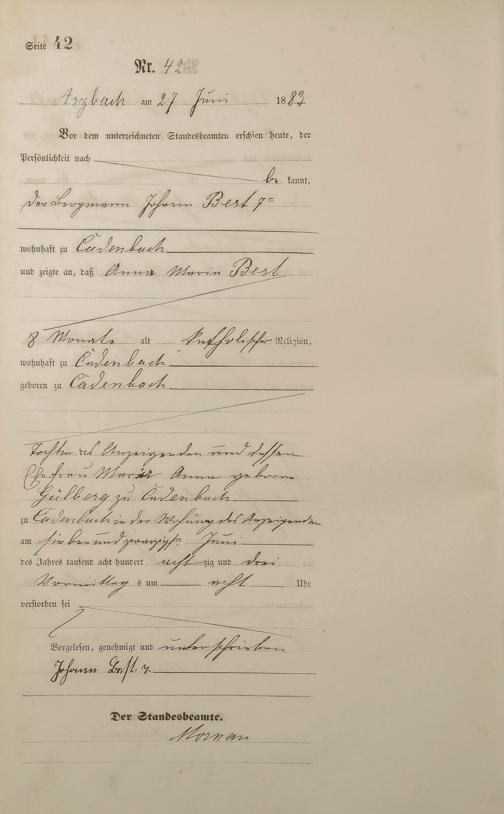 Seite 42
Nr. 42
Arzbach am 27 Juni 1883
Vor dem unterzeichneten Standesbeamten erschien heute, der
Persönlichkeit nach
be kannt,
der Bergmann Johann Best 7=
wohnhaft zu Cadenbach
und zeigte an, daß Anna Maria Best
8 Monate alt katholischer Religion,
wohnhaft zu Cadenbach
geboren zu Cadenbach
Tochter des Anzeigenden und dessen
Ehefrau Maria Anna geborne
zu Cadenbach
zu Cadenbach in der Wohnung des Anzeigenden
am sieben und zwanzigsten Juni
des Jahres tausend acht hundert acht zig und drei
Vormittag s um acht Uhr
verstorben sei
Vorgelesen, genehmigt und unterschrieben
Johann Best 7.
Der Standesbeamte.